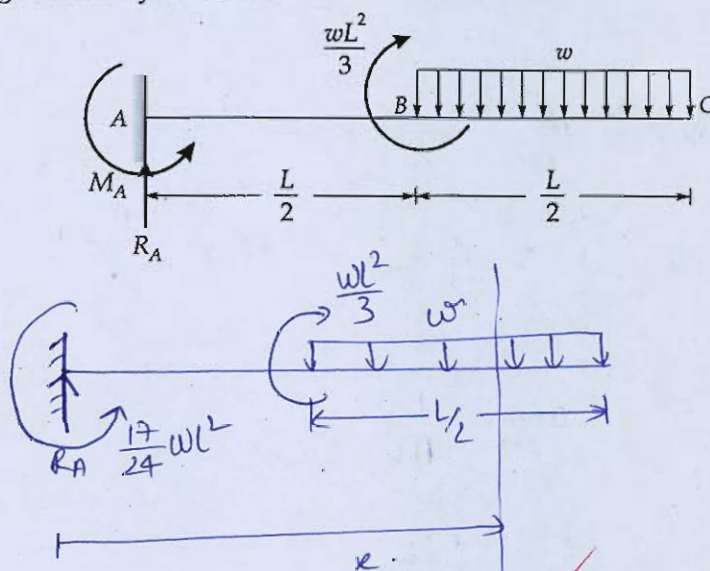 wL²/3
w
A
B
C
M_A
L/2
L/2
R_A
wl²/3
w
L/2
R_A
17/24 wl²
x.